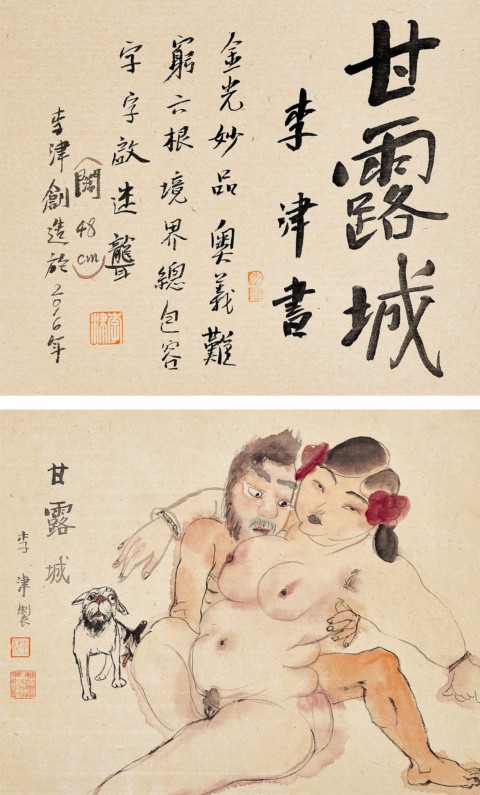 甘露城
李津書
金光妙品奧義難
窮六根境界總包容
字字啟迷聾
(闊48cm)
李津創造於2016年
甘露城
李津製